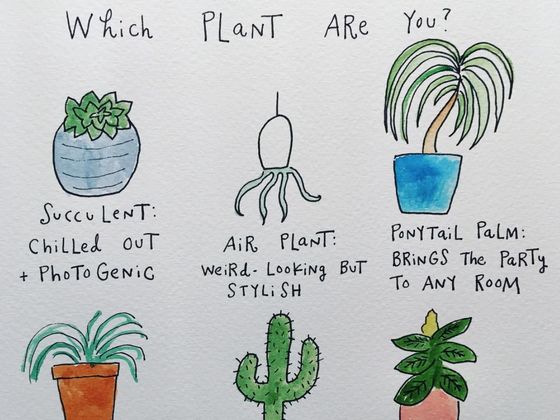 Which Plant Are You?
Succulent:
Chilled Out
+ Photogenic
Air Plant:
Weird-Looking But
Stylish
Ponytail Palm:
Brings The Party
To Any Room